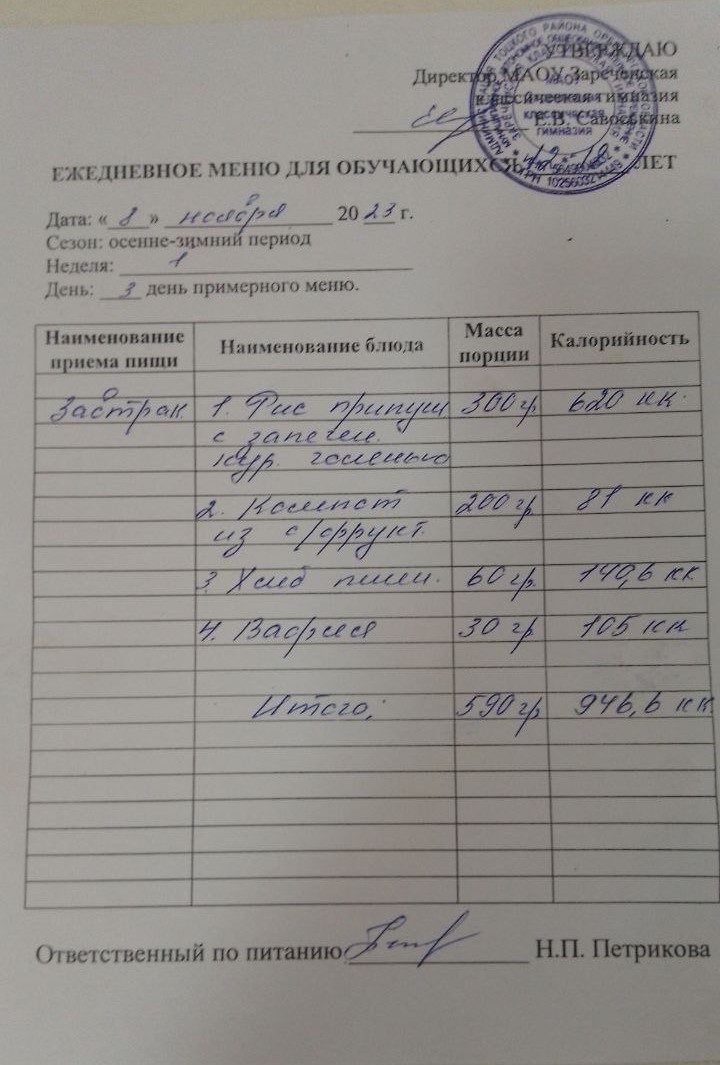 УТВЕРЖДАЮ
Директор МАОУ Зареченская
классическая гимназия
Е.В. Савоськина
ЕЖЕДНЕВНОЕ МЕНЮ ДЛЯ ОБУЧАЮЩИХСЯ 12-18 ЛЕТ
Дата: «8» ноября 2023 г.
Сезон: осенне-зимний период
Неделя: 1
День: 3 день примерного меню.
Наименование приема пищи Наименование блюда Масса порции Калорийность
Завтрак 1. Рис припущ 300 гр 620 кк.
с запечен.
кур. голенью
2. Компот 200 гр. 81 кк
из с/фрукт.
3. Хлеб пшен. 60 гр. 140,6 кк
4. Вафля 30 гр 105 кк
Итого: 590 гр 946,6 кк.
Ответственный по питанию Н.П. Петрикова